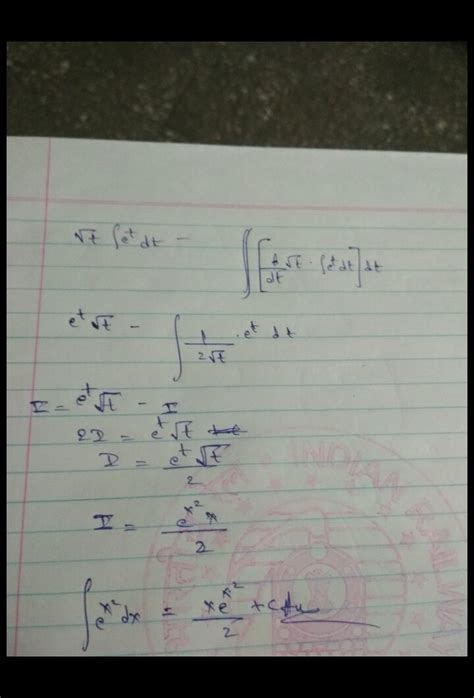 √t ∫eᵗ dt − ∫[d/dt √t · ∫eᵗ dt] dt
eᵗ√t − ∫ 1/(2√t) · eᵗ dt
I = eᵗ√t − I
2I = eᵗ√t
I = eᵗ√t / 2
I = e^x² x / 2
∫ e^x² dx = x e^x² / 2 + C
INDIAN RAILWAY